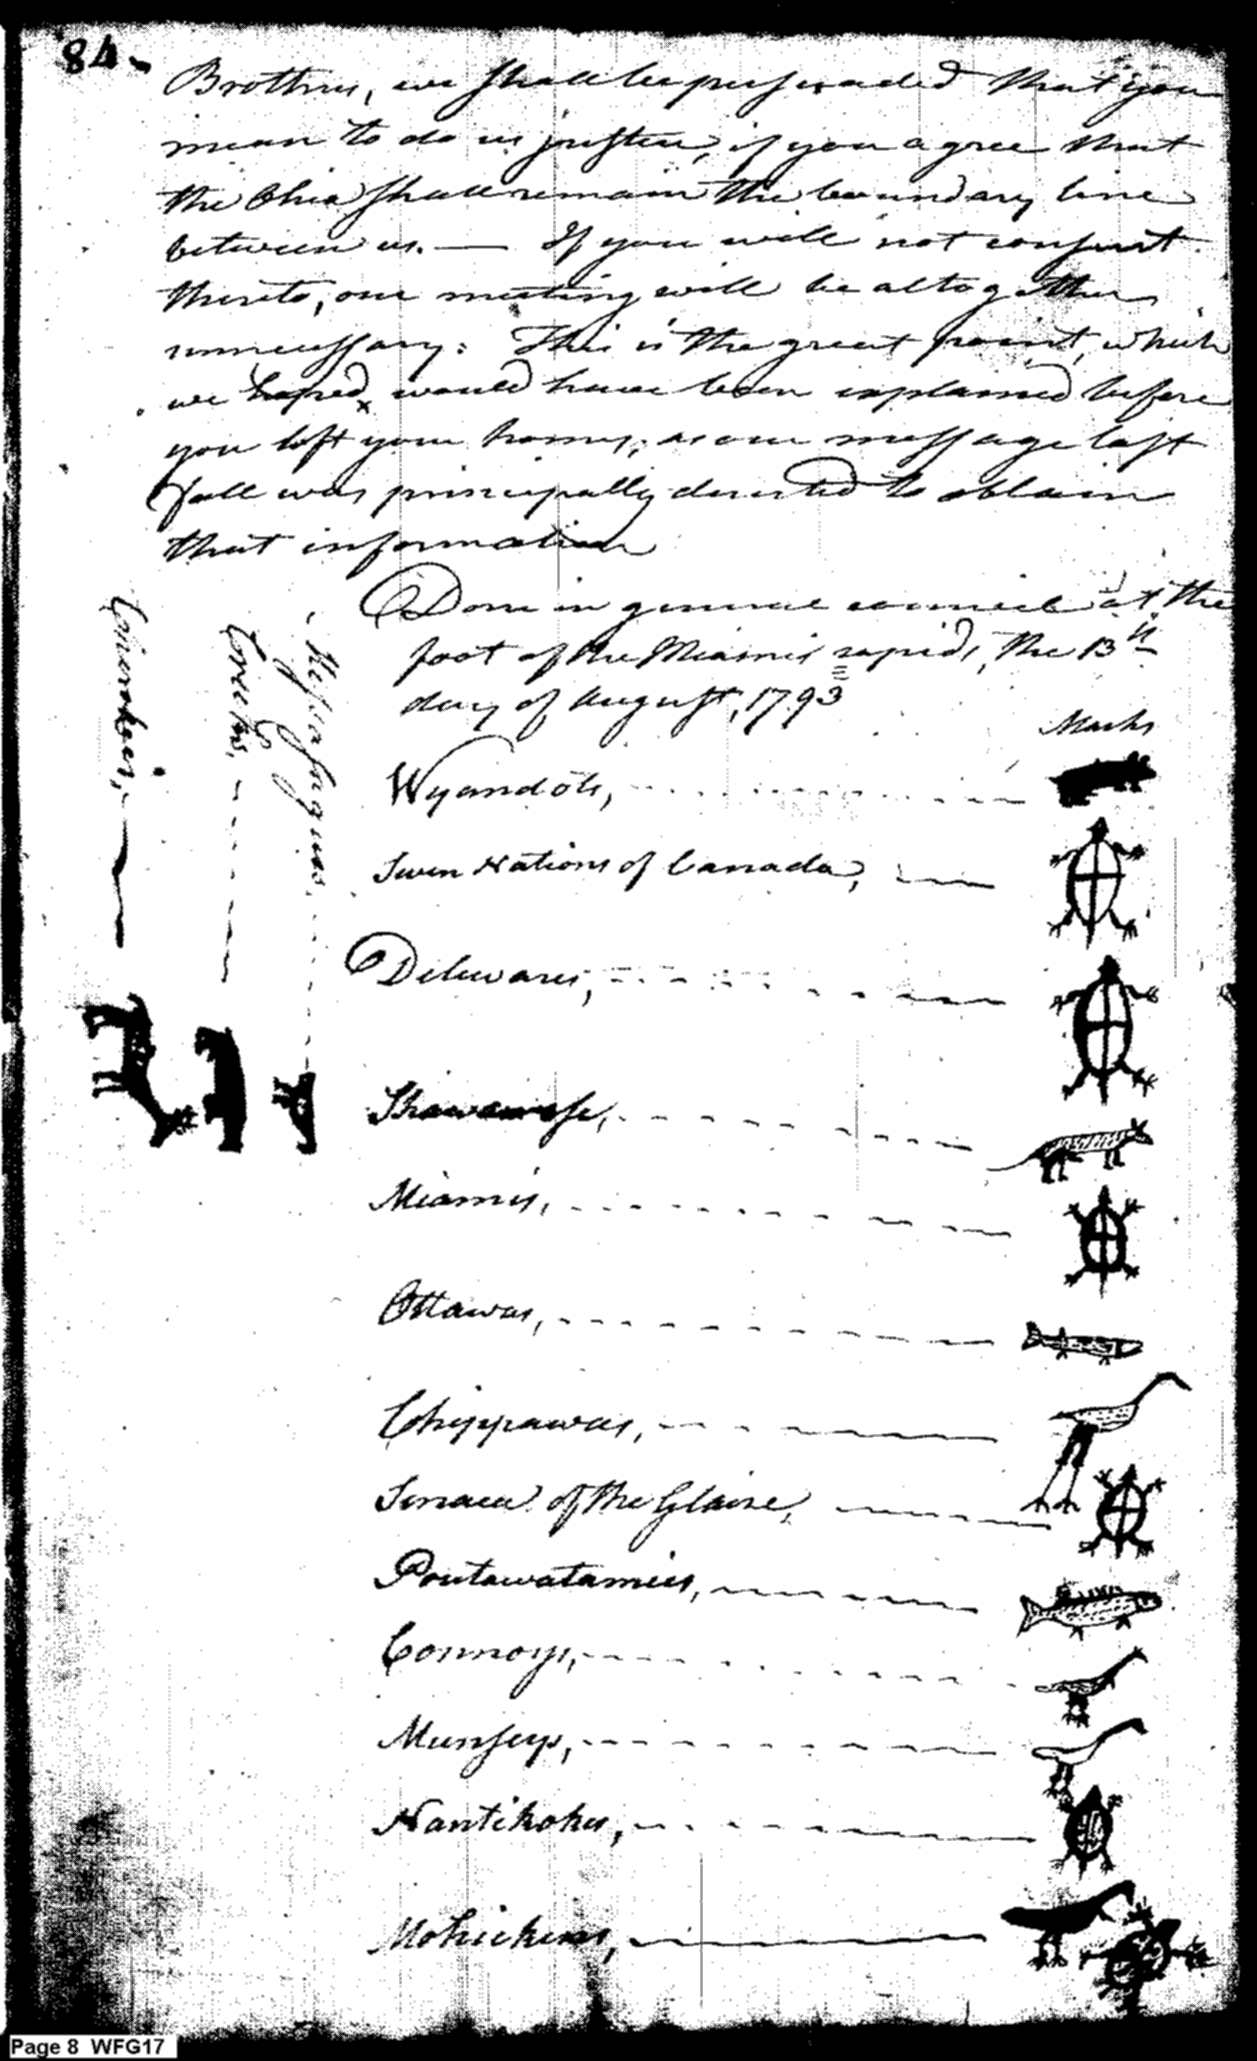 84-
Brothers, we shall be persuaded that you
mean to do us justice, if you agree that
the Ohio shall remain the boundary line
between us. — If you will not consent
thereto, our meeting will be altogether
unnecessary: This is the great point, which
we hoped, would have been explained before
you left your homes; as our message last
fall was principally directed to obtain
that information
Done in general council at the
foot of the Miamis rapids, the 13th
day of August, 1793
Marks
Wyandots,
Seven Nations of Canada,
Delewares,
Shawanese,
Miamis,
Ottawas,
Chippawas,
Senecas of the Glaise,
Poutawatamies,
Connoys,
Munseys,
Nantikokes,
Mohickens,
Messasaguas
Creeks,
Cherokees,
Page 8 WFG17